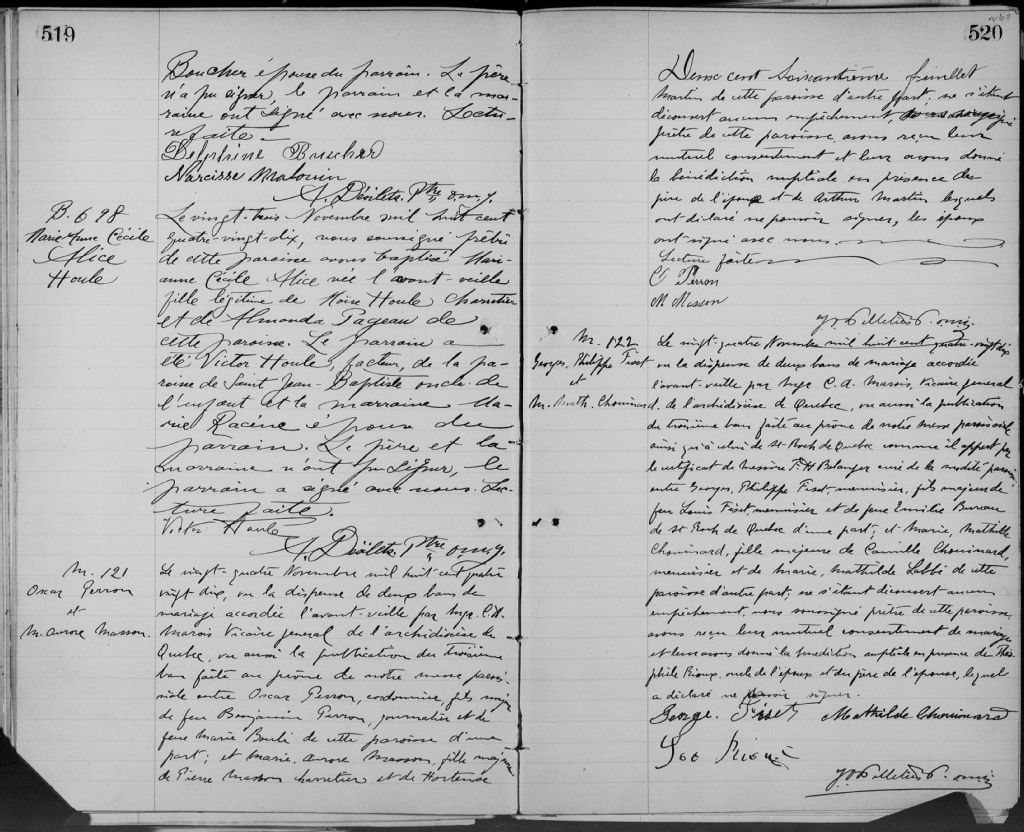 519
Boucher épouse du parrain. Le père
n'a pu signer, le parrain et la mar-
raine ont signé avec nous. Lectu-
re faite.
Delphine Boucher
Narcisse Malouin
Ptre o.m.j.
B. 698
Marie Anne Cécile
Alice
Houle
Le vingt-trois Novembre mil huit cent
quatre-vingt-dix, nous soussigné prêtre
de cette paroisse avons baptisé Mari-
anne Cécile Alice née l'avant-veille
fille légitime de Moïse Houle charretier
et de Almanda Pageau de
cette paroisse. Le parrain a
été Victor Houle, facteur, de la pa-
roisse de Saint Jean-Baptiste oncle de
l'enfant et la marraine Ma-
rie Racine épouse du
parrain. Le père et la
marraine n'ont pu signer, le
parrain a signé avec nous. Lec-
ture faite.
Victor Houle
Ptre o.m.j.
M. 121
Oscar Perron
et
M. Aurore Masson.
Le vingt-quatre Novembre mil huit cent quatre
vingt dix, vu la dispense de deux bans de
mariage accordée l'avant-veille par Mgr. C.A.
Marois Vicaire general de l'archidiocèse de
Quebec, vu aussi la publication du troisième
ban faite au prône de notre messe parois-
siale entre Oscar Perron, cordonnier, fils majeur
de feu Benjamin Perron, journalier et de
feue Marie Boulé de cette paroisse d'une
part; et Marie, Aurore Masson, fille majeure
de Pierre Masson charretier et de Hortense
260
520
Deux cent soixantième feuillet
Martin de cette paroisse d'autre part; ne s'étant
découvert aucun empêchement,
prêtre de cette paroisse, avons reçu leur
mutuel consentement et leur avons donné
la bénédiction nuptiale en présence du
père de l'épouse et de Arthur Martin lesquels
ont déclaré ne pouvoir signer, les époux
ont signé avec nous.
Lecture faite
O Perron
M Masson
M. 122
Georges, Philippe Fiset
et
M. Math. Chouinard.
Le vingt-quatre Novembre mil huit cent quatre-vingt-dix
vu la dispense de deux bans de mariage accordée
l'avant-veille par Mgr C. A. Marois, Vicaire general
de l'archidiocèse de Quebec, vu aussi la publication
du troisième ban faite au prône de notre messe paroissiale
ainsi qu'à celui de St Roch de Quebec comme il appert par
le certificat de messire F. H Belanger curé de la susdite paroisse
entre Georges, Philippe Fiset, menuisier, fils majeur de
feu Louis Fiset, menuisier et de feue Emilie Bureau
de St Roch de Quebec d'une part; et Marie, Mathilde
Chouinard, fille majeure de Camille Chouinard,
menuisier et de Marie, Mathilde Labbé de cette
paroisse d'autre part, ne s'étant découvert aucun
empêchement, nous soussigné prêtre de cette paroisse
avons reçu leur mutuel consentement de mariage
et leur avons donné la bénédiction nuptiale en présence de Théo
phile Rioux, oncle de l'époux et du père de l'épouse, lequel
a déclaré ne savoir signer.
George. Fiset Mathilde Chouinard